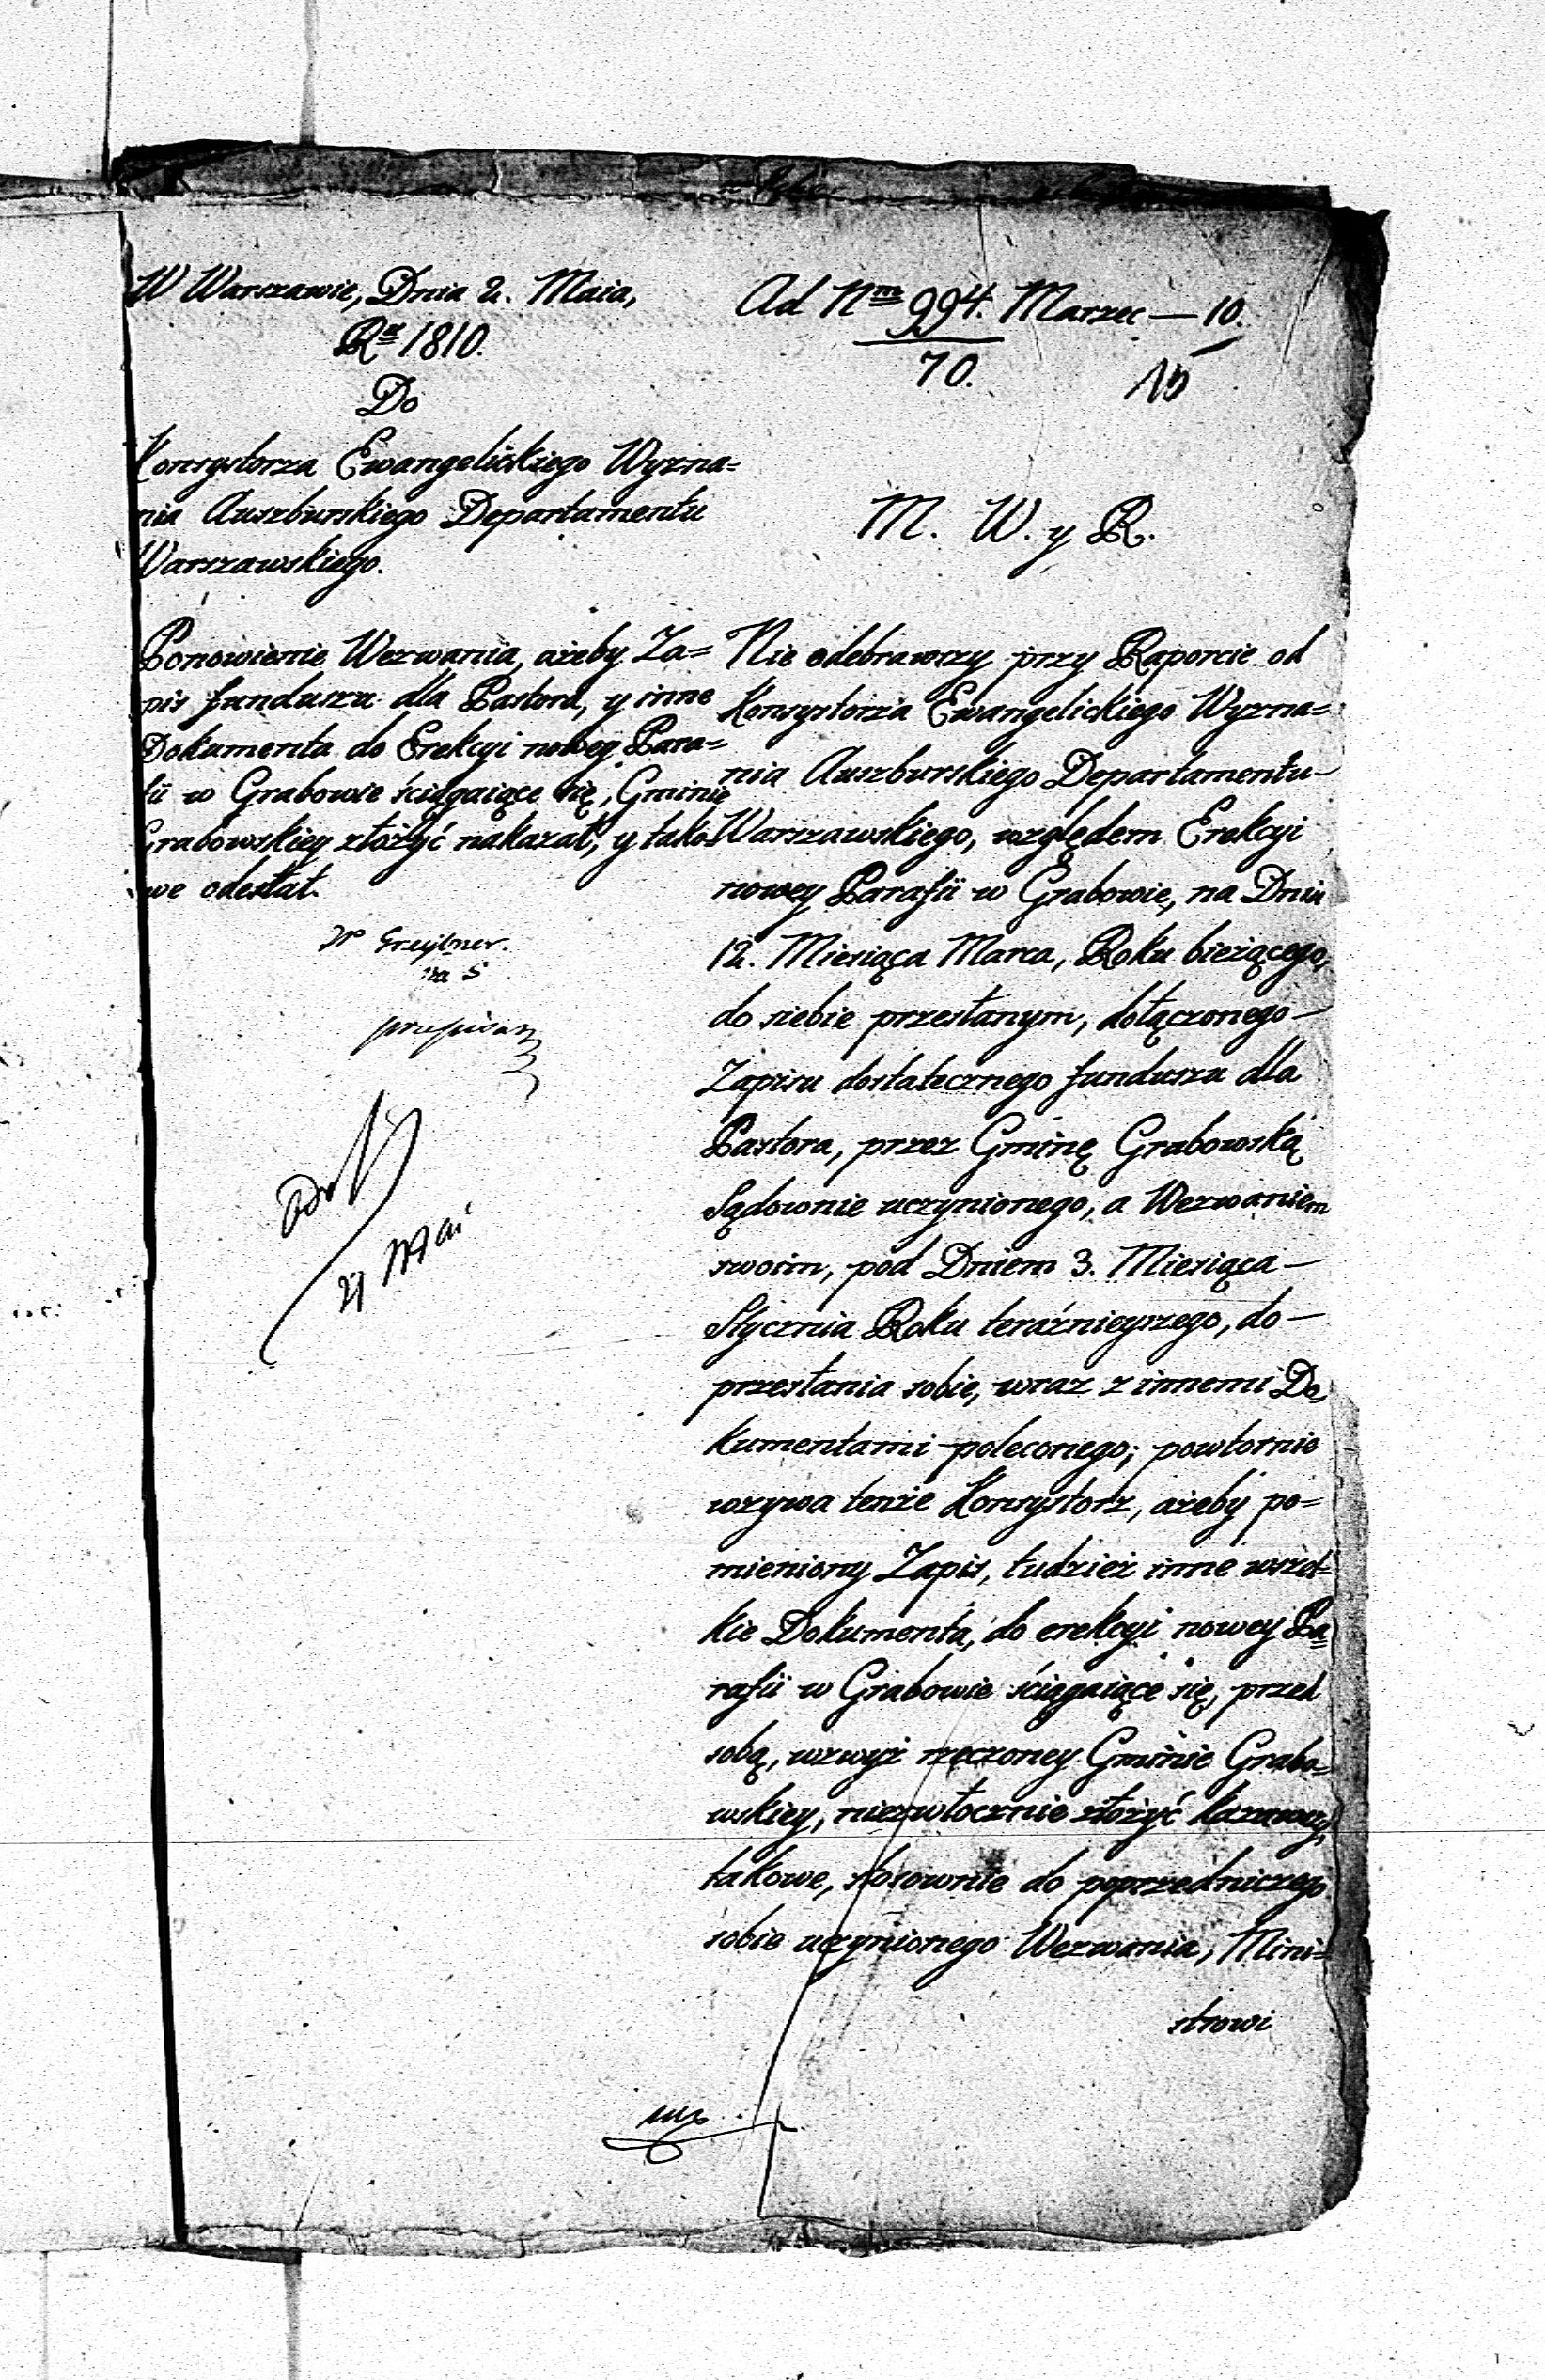 W Warszawie, Dnia 2. Maia,
Rx 1810.
Do
Konsystorza Ewangelickiego Wyzna=
nia Auszburskiego Departamentu
Warszawskiego.
Ponowienie Wezwania, ażeby Za=
pis funduszu dla Pastora, y inne
Dokumenta do Erekcyi nowey Para=
fii w Grabowie ściągaiące się, Gminie
Grabowskiey złożyć nakazał, y tako=
we odesłał.
na S
przepisan
21 Mai
Ad Nm 994. Marzec — 10.
70.
15
M. W. y R.
Nie odebrawszy przy Raporcie od
Konsystorza Ewangelickiego Wyzna=
nia Auszburskiego Departamentu
Warszawskiego, względem Erekcyi
nowey Parafii w Grabowie, na Dniu
12. Miesiąca Marca, Roku bieżącego,
do siebie przesłanym, dołączonego
Zapisu dostatecznego funduszu dla
Pastora, przez Gminę Grabowską
Sądownie uczynionego, a Wezwaniem
swoim, pod Dniem 3. Miesiąca
Stycznia Roku teraźnieyszego, do
przesłania sobie, wraz z innemi Do,
kumentami poleconego; powtornie
wzywa tenże Konsystorz, ażeby po=
mieniony Zapis, tudzież inne wszel=
kie Dokumenta, do erekcyi nowey Pa=
rafii w Grabowie ściągaiące się, przed
sobą, wzwyż rzeczoney Gminie Grabo=
wskiey, niezwłocznie złożyć kazawszy,
takowe, stosownie do poprzedniczego
sobie uczynionego Wezwania, Mini=
strowi